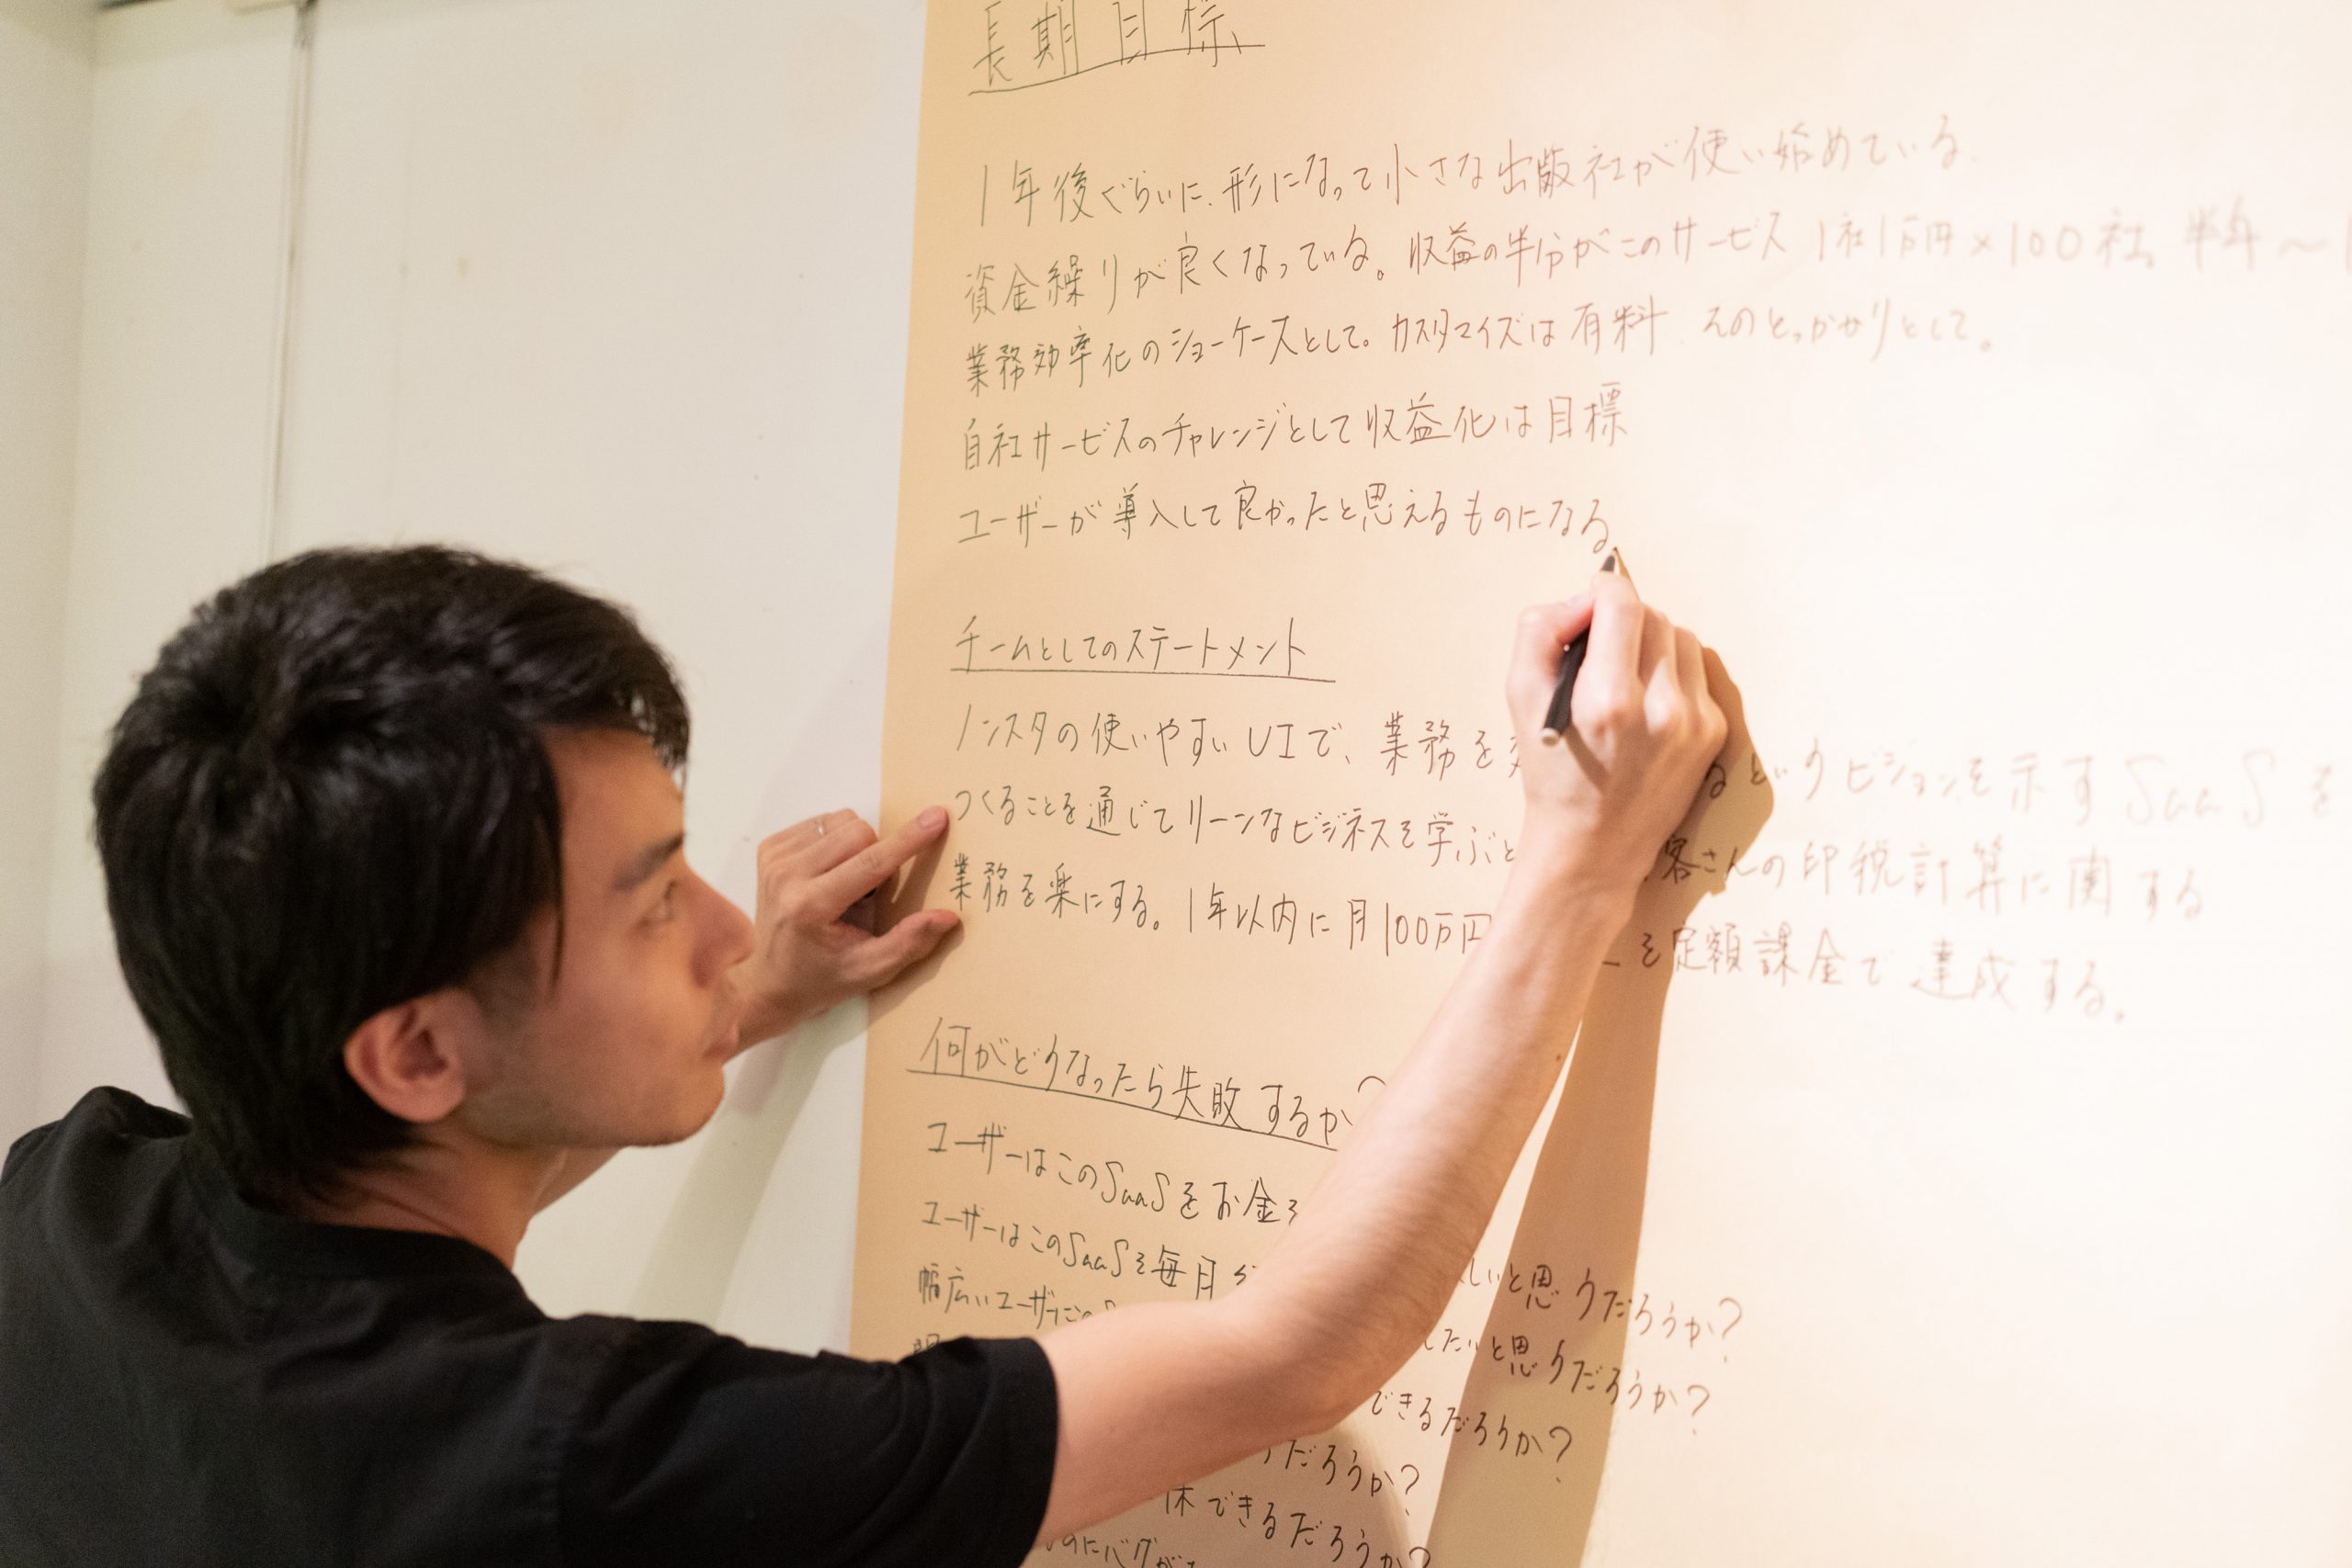 長期目標
1年後ぐらいに、形になって小さな出版社が使い始めている。
資金繰りが良くなっている。収益の半分がこのサービス 1社1万円×100社 半年〜1
業務効率化のショーケースとして。カスタマイズは有料 そのとっかかりとして。
自社サービスのチャレンジとして収益化は目標
ユーザーが導入して良かったと思えるものになる。
チームとしてのステートメント
ノンスタの使いやすいUIで、業務を るというビジョンを示すSaaSを
つくることを通じてリーンなビジネスを学ぶと 客さんの印税計算に関する
業務を楽にする。1年以内に月100万円 を定額課金で達成する。
何がどうなったら失敗するか?
ユーザーはこのSaaSをお金を しいと思うだろうか?
ユーザーはこのSaaSを毎日 したいと思うだろうか?
幅広いユーザーにこの できるだろうか?
だろうか?
できるだろうか?
のにバグが